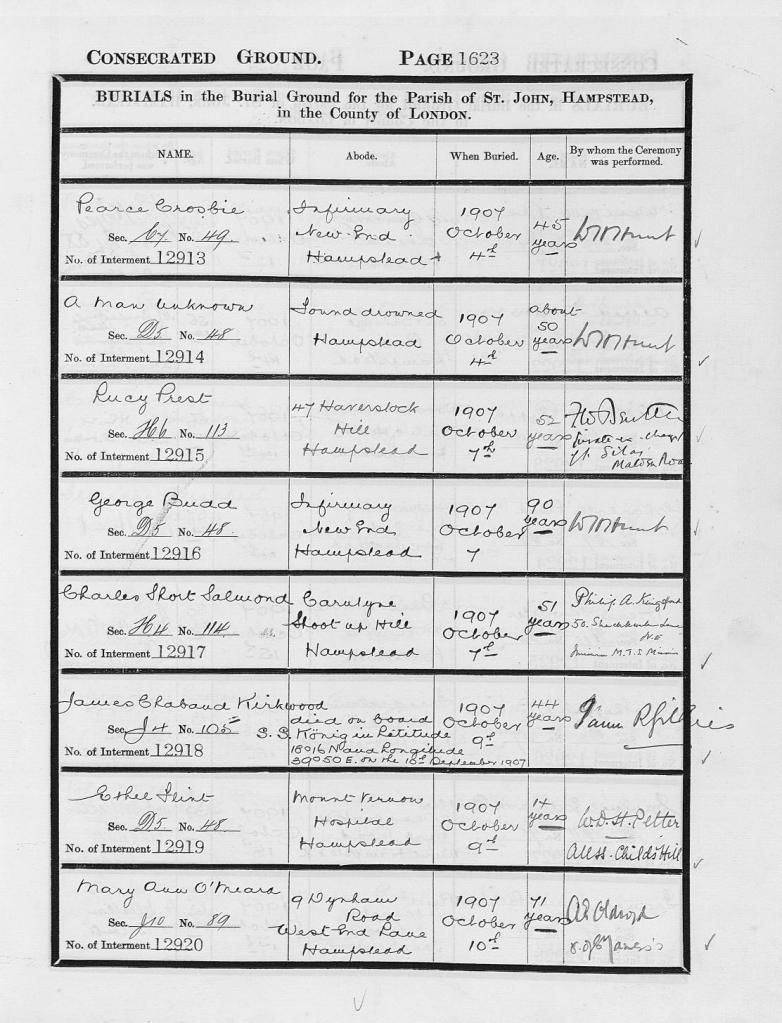 CONSECRATED GROUND. PAGE 1623
BURIALS in the Burial Ground for the Parish of ST. JOHN, HAMPSTEAD,
in the County of LONDON.
NAME. Abode. When Buried. Age. By whom the Ceremony
was performed.
Pearce Crosbie Infirmary 1907 45 W H Hunt
Sec. No. 49. New End October years
No. of Interment 12913 Hampstead 4th
A Man Unknown Found drowned 1907 about W H Hunt
Sec. D5 No. 48 Hampstead October 50 years
No. of Interment 12914 4th
Lucy Prest 47 Haverstock 1907 52
Sec. H6 No. 113 Hill October years
No. of Interment 12915 Hampstead 7th
George Budd Infirmary 1907 90 W H Hunt
Sec. D5 No. 48. New End October years
No. of Interment 12916 Hampstead 7
Charles Short Salmond 1907 51 Philip A. Kingsford
Sec. H4 No. 114 Shoot up Hill October years 50.
No. of Interment 12917 Hampstead 7th N.E
James Chabaud Kirkwood 1907 44
died on board October years
Sec. J4 No. 105 S.S. König in Latitude 9th
No. of Interment 12918 18016 N and Longitude
39050 E. on the September 1907
Ethel Flint Mount Vernon 1907 14 W.D. St. Petter
Sec. D5 No. 48 Hospital October years
No. of Interment 12919 Hampstead 9th All Ss. Childs Hill
Mary Ann O'Meara 9 Dynham 1907 71
Sec. J10 No. 89 Road October years
No. of Interment 12920 West End Lane 10th
Hampstead